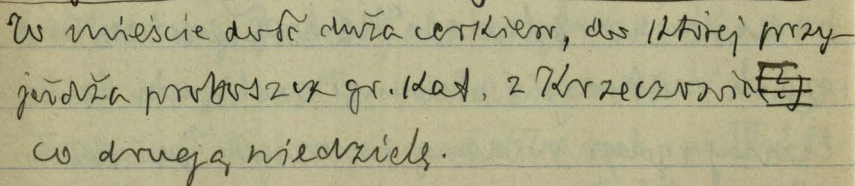 W mieście dość duża cerkiew, do której przy-
jeżdża proboszcz gr. kat. z Krzeczowic
co drugą niedzielę.